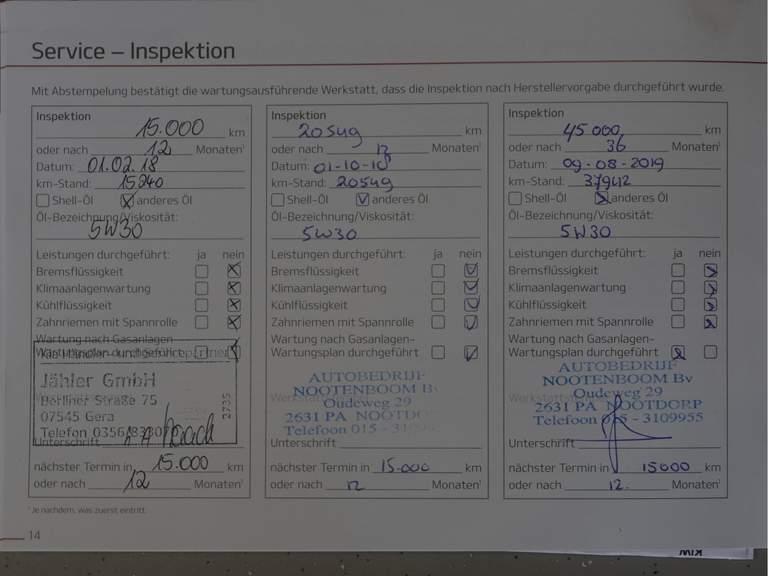 Service – Inspektion
Mit Abstempelung bestätigt die wartungsausführende Werkstatt, dass die Inspektion nach Herstellervorgabe durchgeführt wurde.
Inspektion
15.000 km
oder nach 12 Monaten¹
Datum: 01.02.18
km-Stand: 15240
Shell-Öl anderes Öl
Öl-Bezeichnung/Viskosität:
5W30
Leistungen durchgeführt: ja nein
Bremsflüssigkeit
Klimaanlagenwartung
Kühlflüssigkeit
Zahnriemen mit Spannrolle
Wartung nach Gasanlagen-
Wartungsplan durchgeführt
Jähler GmbH
Berliner Straße 75
07545 Gera
Telefon
2735
Unterschrift
nächster Termin in 15.000 km
oder nach 12 Monaten¹
Inspektion
20549 km
oder nach 12 Monaten¹
Datum: 01-10-18
km-Stand: 20549
Shell-Öl anderes Öl
Öl-Bezeichnung/Viskosität:
5W30
Leistungen durchgeführt: ja nein
Bremsflüssigkeit
Klimaanlagenwartung
Kühlflüssigkeit
Zahnriemen mit Spannrolle
Wartung nach Gasanlagen-
Wartungsplan durchgeführt
AUTOBEDRIJF
NOOTENBOOM Bv
Oudeweg 29
2631 PA NOOTDO
Telefoon 015 - 3109
Unterschrift
nächster Termin in 15.000 km
oder nach 12 Monaten¹
Inspektion
45000 km
oder nach 36 Monaten¹
Datum: 09-08-2019
km-Stand: 37942
Shell-Öl anderes Öl
Öl-Bezeichnung/Viskosität:
5W30
Leistungen durchgeführt: ja nein
Bremsflüssigkeit
Klimaanlagenwartung
Kühlflüssigkeit
Zahnriemen mit Spannrolle
Wartung nach Gasanlagen-
Wartungsplan durchgeführt
AUTOBEDRIJF
NOOTENBOOM Bv
Oudeweg 29
2631 PA NOOTDORP
Telefoon 015 - 3109955
Unterschrift
nächster Termin in 15000 km
oder nach 12. Monaten¹
¹ Je nachdem, was zuerst eintritt.
14